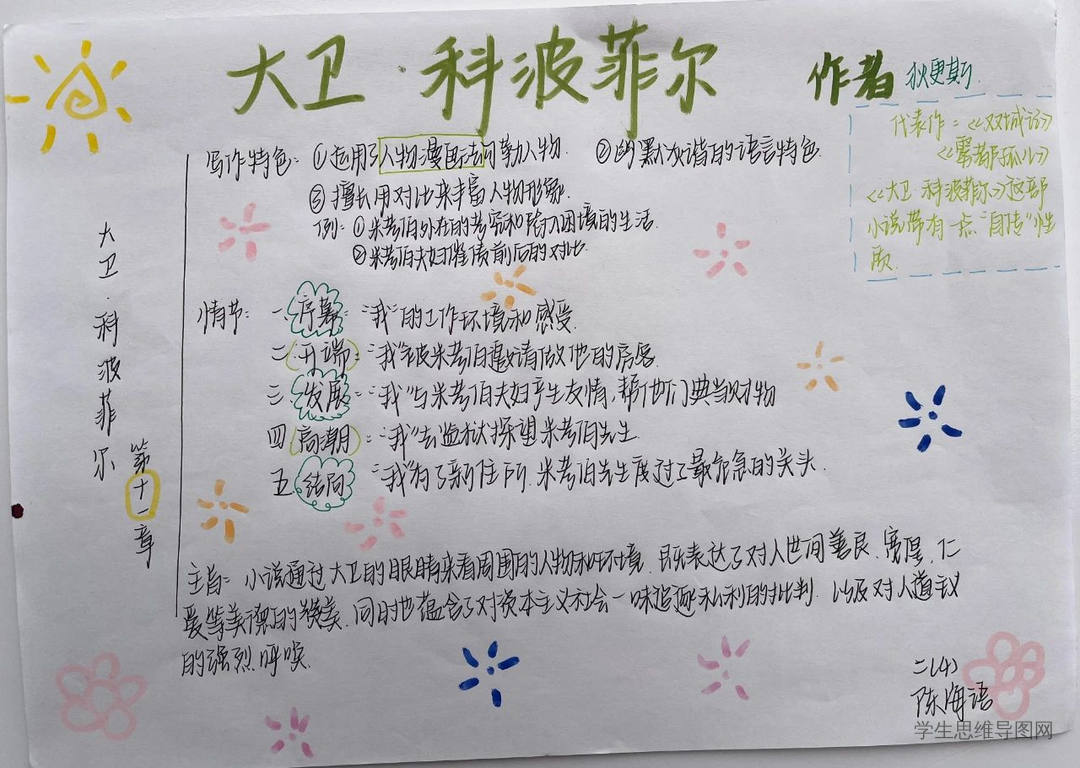 大卫·科波菲尔
作者 狄更斯
代表作：《双城记》
《雾都孤儿》
《大卫 科波菲尔》这部
小说带有一点“自传”性
质.
写作特色：①运用了人物漫画法勾勒人物. ②幽默诙谐的语言特色.
③擅长用对比来丰富人物形象.
例：①米考伯外在的考究和陷入困境的生活.
②米考伯夫妇催债前后的对比.
大卫·科波菲尔
第十一章
情节：一、序幕：“我”的工作环境和感受.
二（开端）：“我”被米考伯邀请做他的房客.
三、发展：“我”与米考伯夫妇产生友情，帮他们典当财物
四（高潮）：“我”去监狱探望米考伯先生.
五 结局：“我”为了新住所.米考伯先生度过了最危急的关头.
主旨：小说通过大卫的眼睛来看周围的人物和环境.既表达了对人世间善良.宽厚.仁
爱等美德的赞美.同时也蕴含了对资本主义社会一味追逐私利的批判.以及对人道主义
的强烈呼唤.
二(4)
陈海语
学生思维导图网